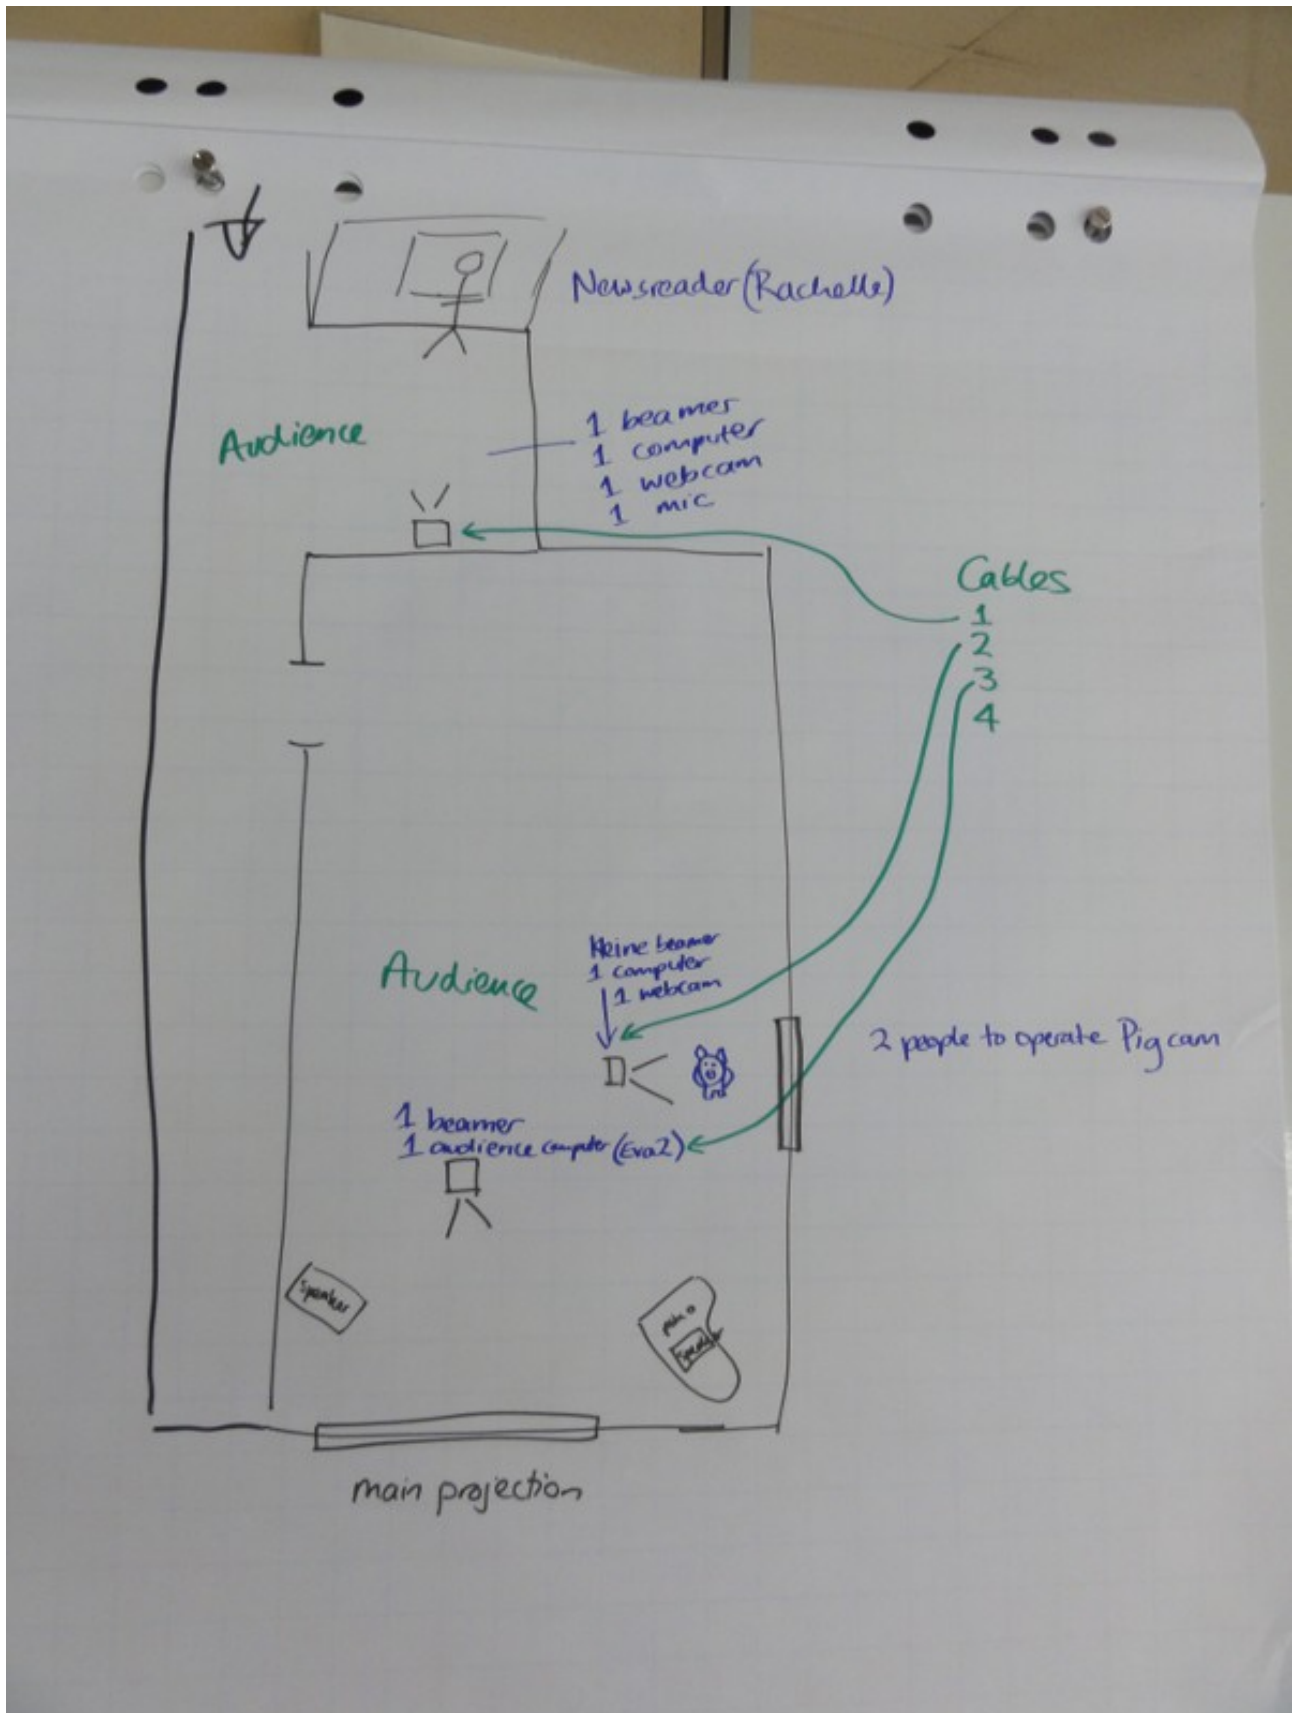 Newsreader (Rachelle)
Audience
1 beamer
1 computer
1 webcam
1 mic
Cables
1
2
3
4
Audience
Kleine beamer
1 computer
1 webcam
2 people to operate Pig cam
1 beamer
1 audience computer (Eva2)
Speaker
piano
Speaker
main projection